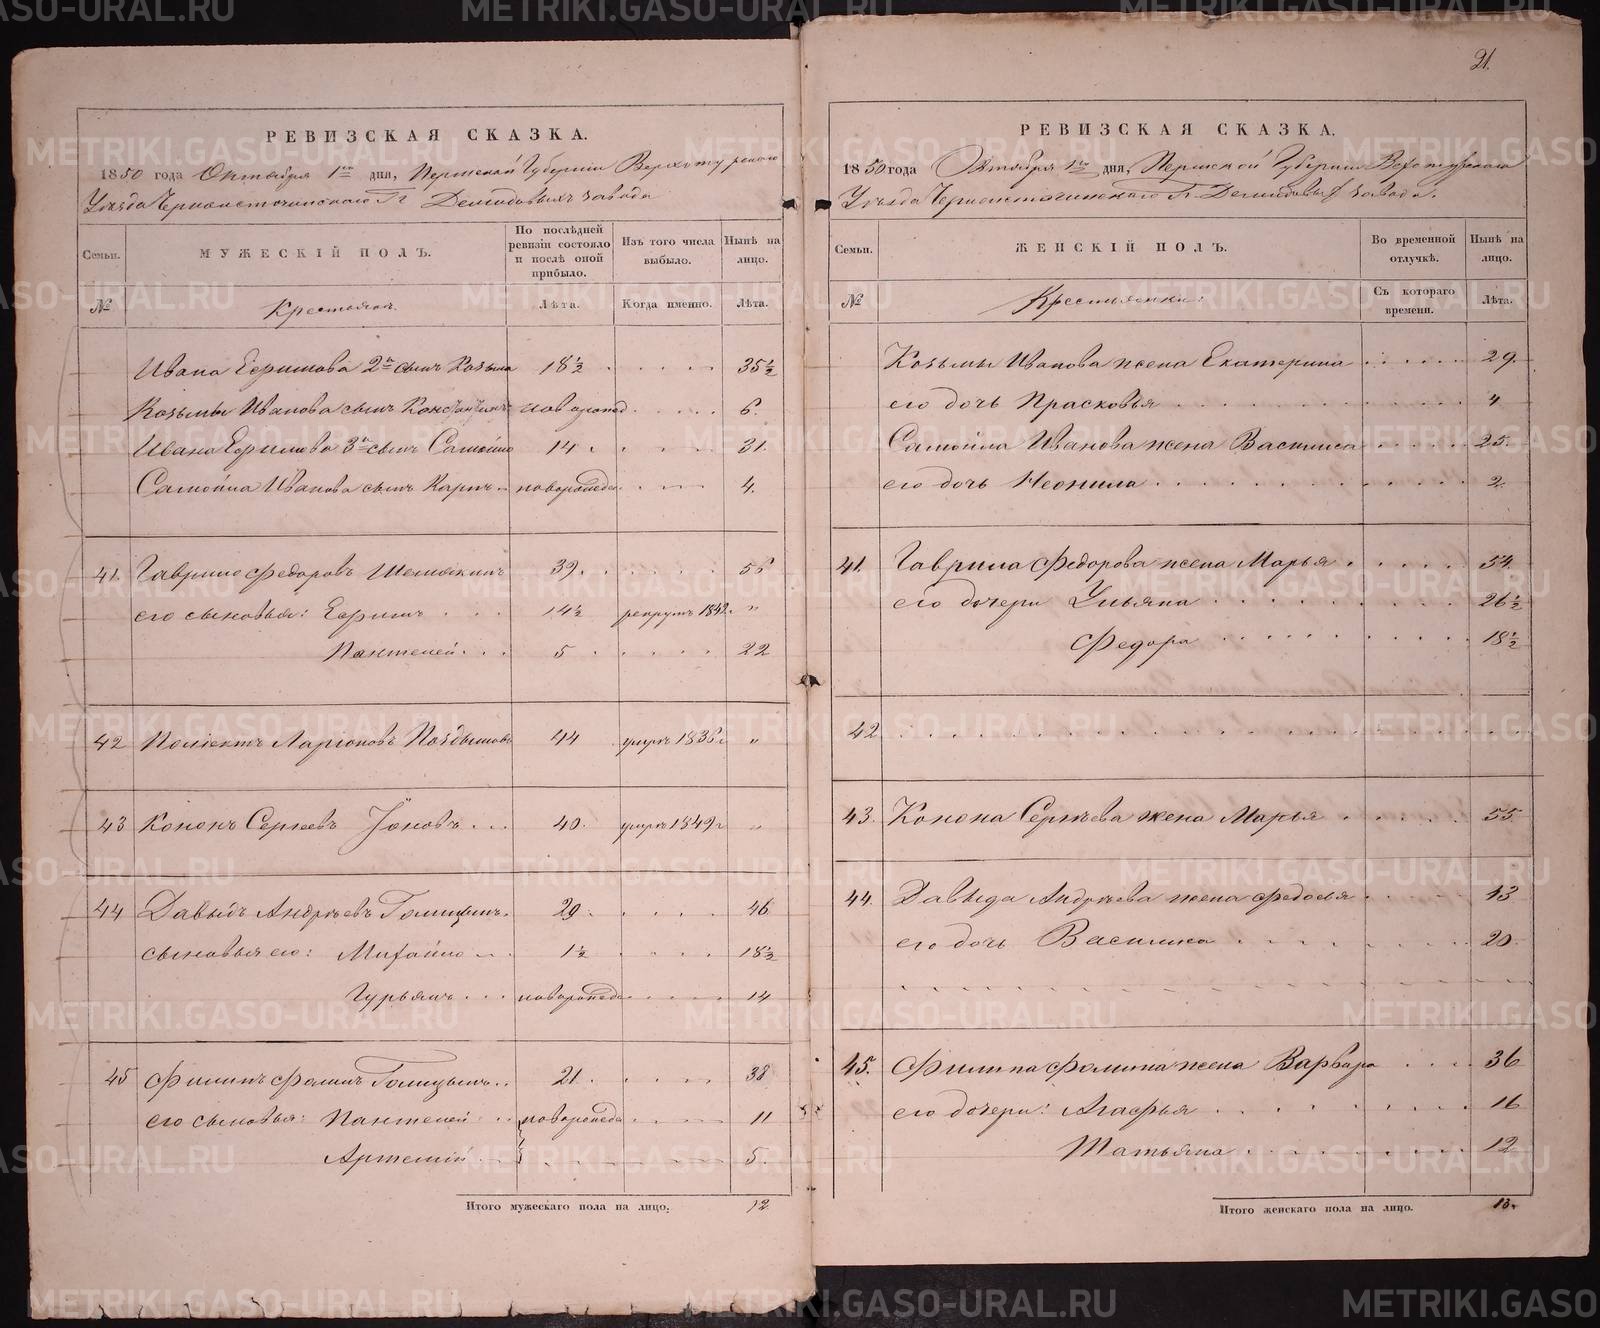 РЕВИЗСКАЯ СКАЗКА.
1850 года Октября 1го дня, Пермской Губернии Верхотурскаго
Уѣзда Черноисточинскаго Гг Демидовыхъ завода
Семьи. МУЖЕСКІЙ ПОЛЪ. По послѣдней ревизіи состояло и послѣ оной прибыло. Изъ того числа выбыло. Нынѣ на лицо.
№ Крестьянъ. Лѣта. Когда именно. Лѣта.
Ивана Ефимова 2й сынъ Козьма 18½ 35½
Козьмы Иванова сынъ Константинъ новорожд 6.
Ивана Ефимова 3й сынъ Самойло 14 31.
Самойла Иванова сынъ Карпъ новорожде 4.
41. Гаврило Федоровъ 39. 56
его сыновья: Ефимъ 14½ рекрутъ 1842г. "
Пантелей 5 22
42 Полиектъ Ларіоновъ Поздышовъ 44 умеръ 1836г "
43 Кононъ Сергѣевъ Іоновъ 40. умеръ 1849г "
44 Давыдъ Андрѣевъ Голицынъ 29. 46
сыновья его: Михайло 1½ 18½
Гурьянъ новорожде 14
45 Филипъ Фоминъ Голицынъ 21. 38
его сыновья: Пантелей новорожде 11
Артемій 5.
Итого мужескаго пола на лицо. 12
21.
РЕВИЗСКАЯ СКАЗКА.
1850 года Октября 1го дня, Пермской Губерніи Верхотурскаго
Уѣзда Черноисточинскаго Гг Демидовыхъ завода.
Семьи. ЖЕНСКІЙ ПОЛЪ. Во временной отлучкѣ. Нынѣ на лицо.
№ Крестьянки: Съ котораго времени. Лѣта.
Козьмы Иванова жена Екатерина 29.
его дочь Прасковья 4
Самойла Иванова жена Василиса 25.
его дочь Неонила 2
41. Гаврила Федорова жена Марья 54.
его дочери Ульяна 26½
Федора 18½
42
43. Конона Сергѣева жена Марья 55
44. Давыда Андрѣева жена Федосья 43
его дочь Василиса 20.
45. Филипа Фомина жена Варвара 36
его дочери: Агафья 16
Татьяна 12
Итого женскаго пола на лицо. 13.
METRIKI.GASO-URAL.RU